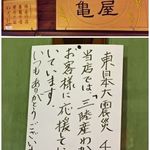 亀屋
東日本大震災 4
当店では「三陸産わ
お客様に応援てい
いています。
いつもありがとうござい